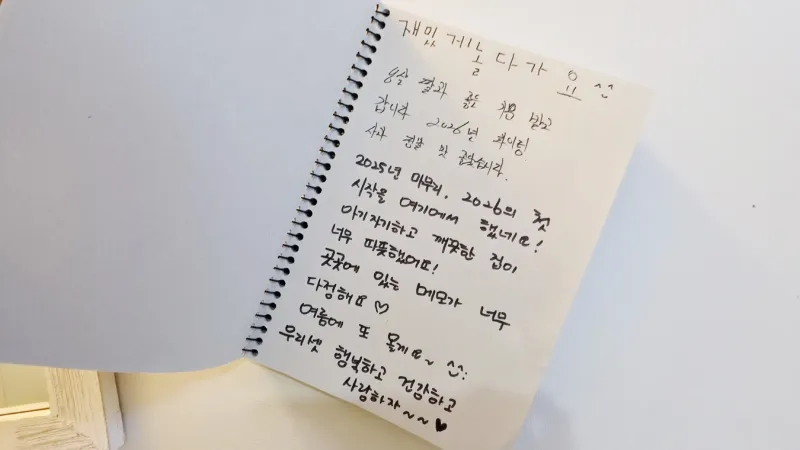 재밌게 놀다가요 ^^
갑니다 2026년 화이팅
2025년 마무리, 2026의 첫
시작을 여기에서 했네요!
아기자기하고 깨끗한 집이
너무 따뜻했어요!
곳곳에 있는 메모가 너무
다정해요 ♡
여름에 또 올게요~ ^^:
우리셋 행복하고 건강하고
사랑하자~~♥